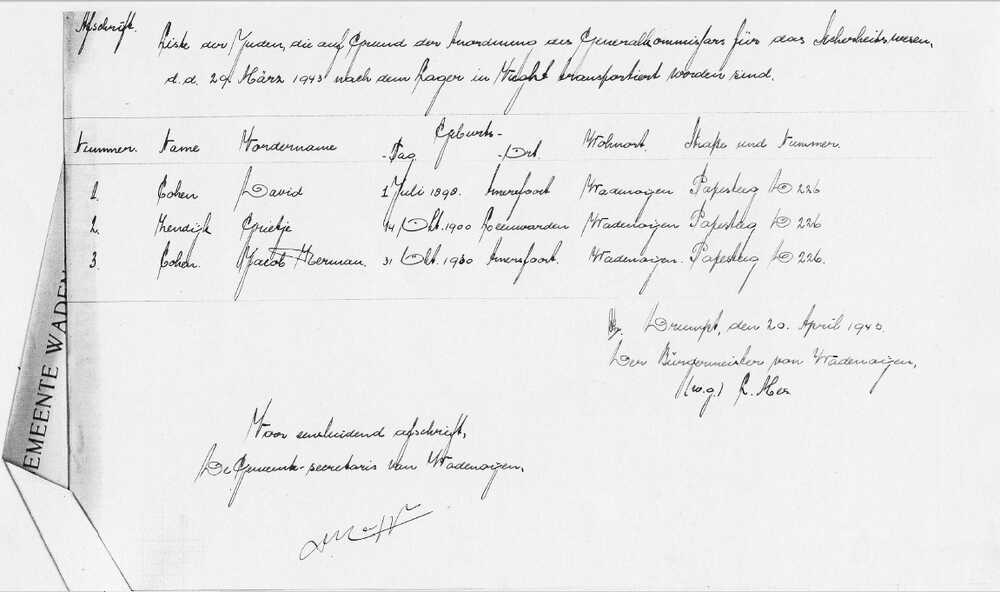 Afschrift.
Liste der Juden, die auf Grund der Anordnung des Generalkommissars für das Sicherheitswesen,
d.d. 29. März 1943 nach dem Lager in Vught transportiert worden sind.
Nummer. Name Vordername Geburts- Wohnort. Straße und Nummer.
-Tag. -Ort.
1. Cohen David 1 Juli 1898. Amersfoort Wadenoijen Papesteeg D 226
2. Kendijk Grietje 14 Okt. 1900 Leeuwarden Wadenoijen Papesteeg D 226
3. Cohen. Jacob Herman. 31 Okt. 1930 Amersfoort. Wadenoijen. Papesteeg D 226.
Drumpt, den 20. April 1943.
Der Bürgermeister van Wadenoijen,
(w.g.)
Voor eensluidend afschrift,
De Gemeente-secretaris van Wadenoijen,
EMEENTE WADEN